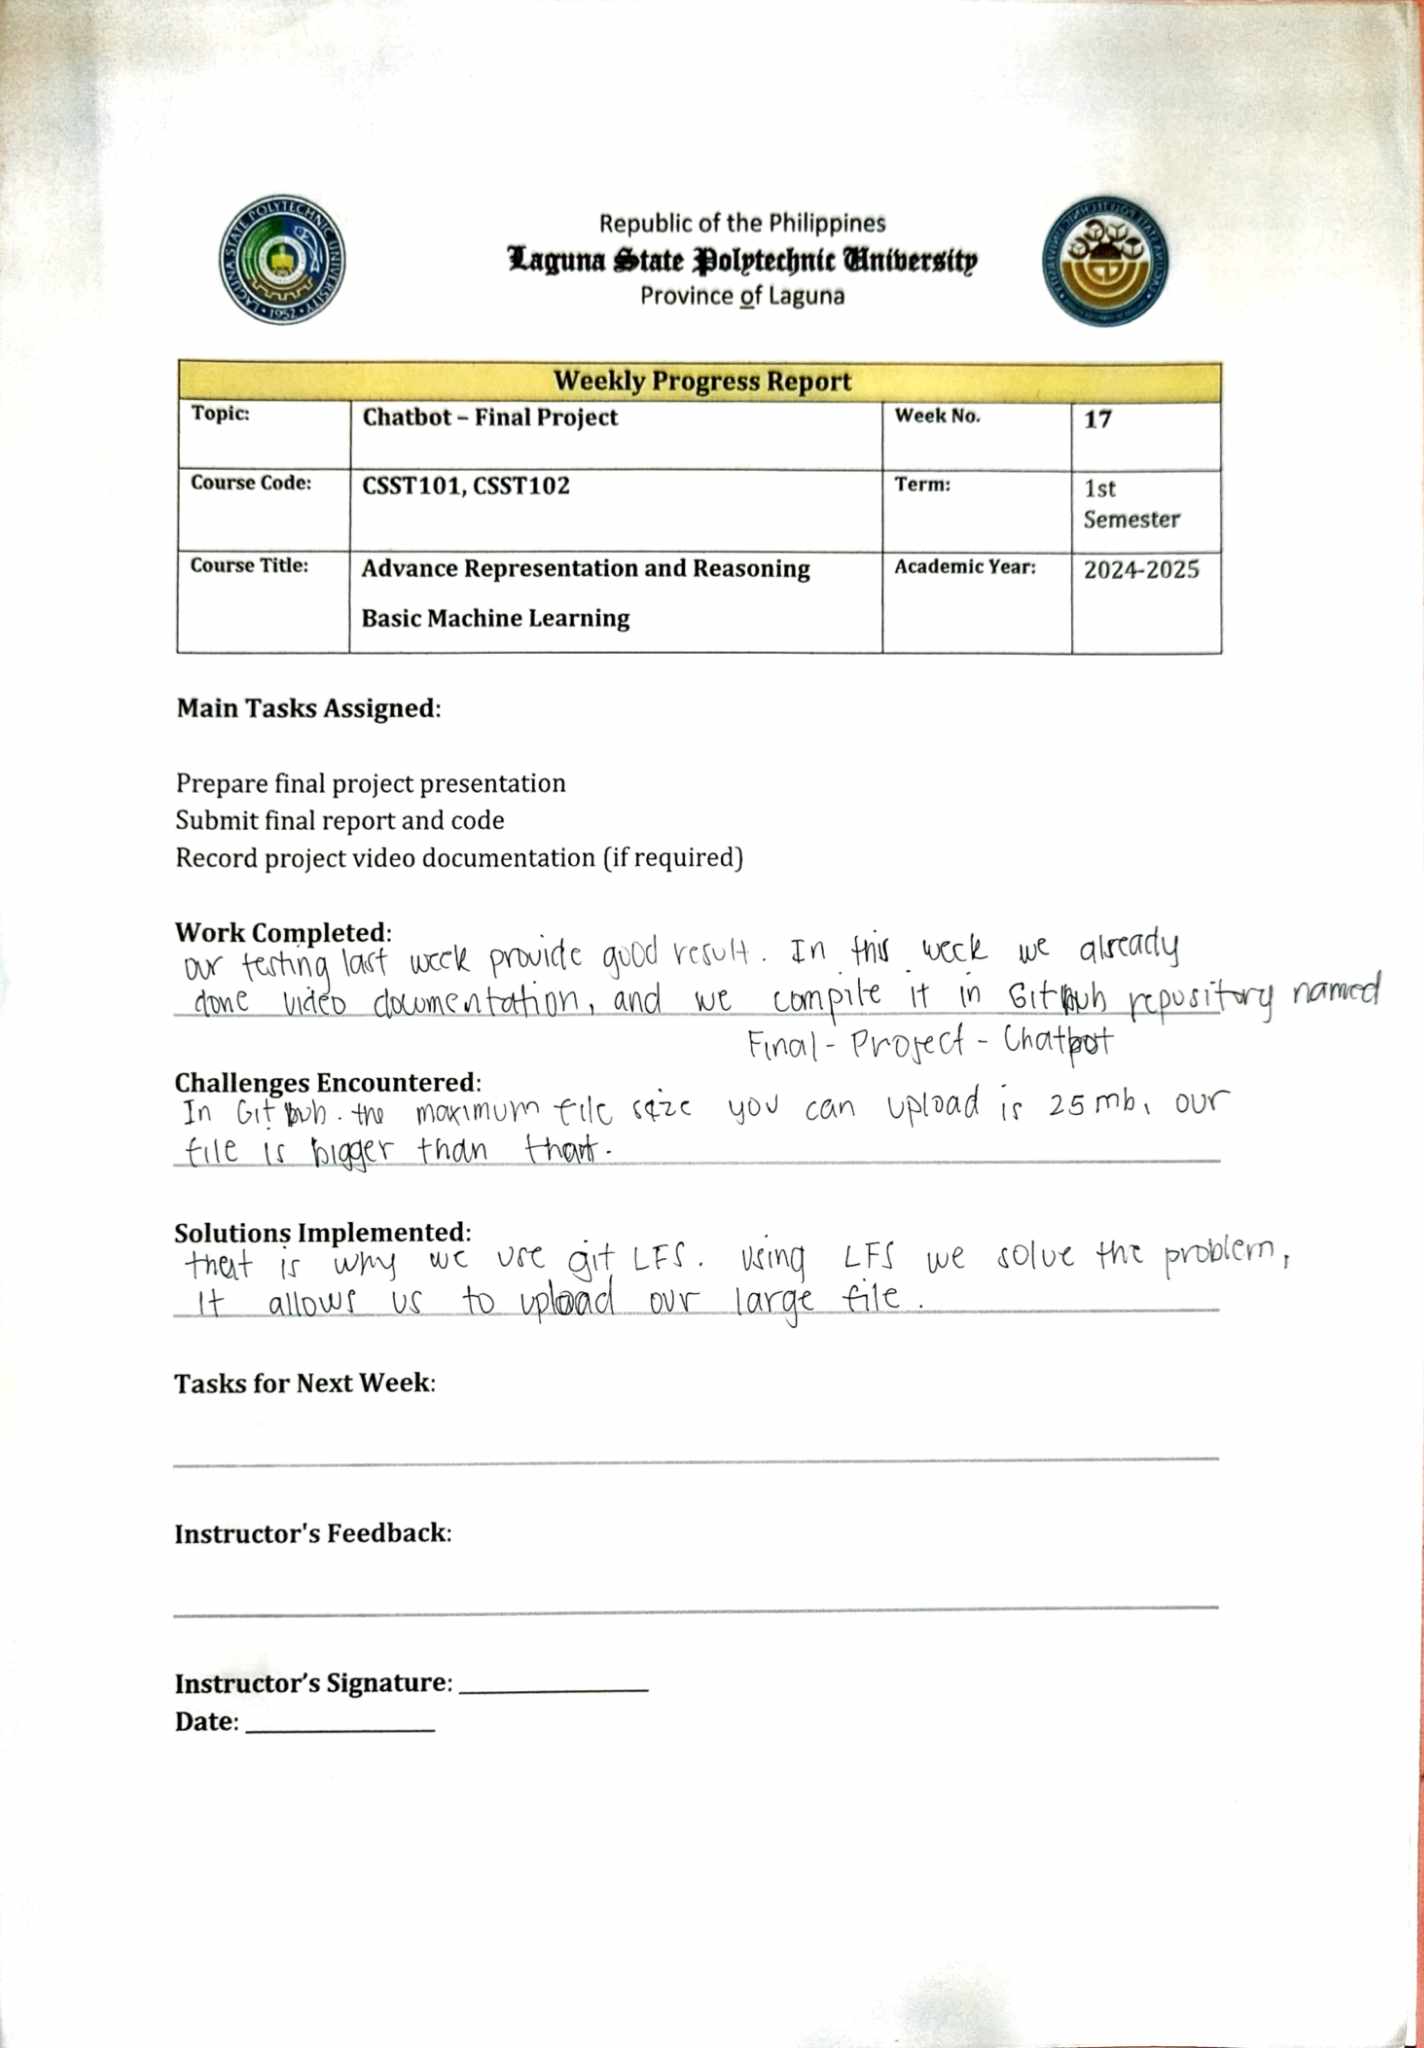 LAGUNA STATE POLYTECHNIC UNIVERSITY
1952
Republic of the Philippines
Laguna State Polytechnic University
Province of Laguna
Weekly Progress Report
Topic: Chatbot – Final Project Week No. 17
Course Code: CSST101, CSST102 Term: 1st
Semester
Course Title: Advance Representation and Reasoning Academic Year: 2024-2025
Basic Machine Learning
Main Tasks Assigned:
Prepare final project presentation
Submit final report and code
Record project video documentation (if required)
Work Completed:
our testing last week provide good result. In this week we already
done video documentation, and we compile it in GitHub repository named
Final - Project - Chatbot
Challenges Encountered:
In GitHub. the maximum file size you can upload is 25 mb, our
file is bigger than that.
Solutions Implemented:
that is why we use git LFS. using LFS we solve the problem,
It allows us to upload our large file.
Tasks for Next Week:
Instructor's Feedback:
Instructor’s Signature:
Date: